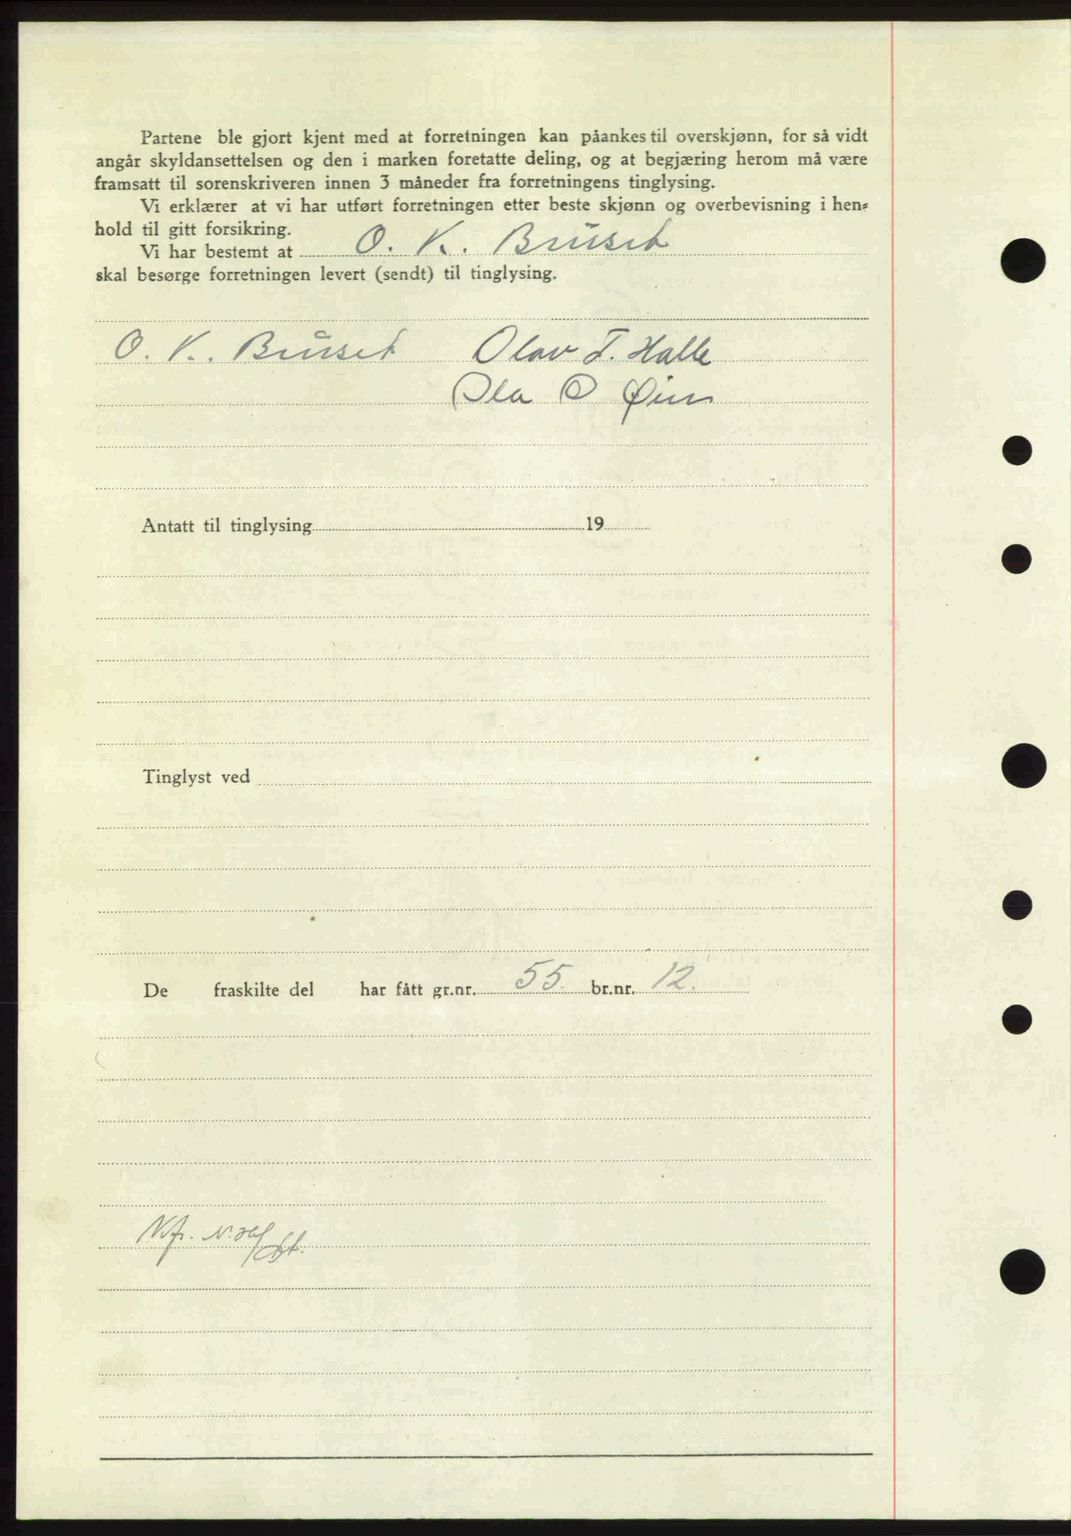 Partene ble gjort kjent med at forretningen kan påankes til overskjønn, for så vidt
angår skyldansettelsen og den i marken foretatte deling, og at begjæring herom må være
framsatt til sorenskriveren innen 3 måneder fra forretningens tinglysing.
Vi erklærer at vi har utført forretningen etter beste skjønn og overbevisning i hen-
hold til gitt forsikring.
Vi har bestemt at O. K. Brüset
skal besørge forretningen levert (sendt) til tinglysing.
O. K. Brüset Olav T. Halle
Ola O Øien
Antatt til tinglysing 19
Tinglyst ved
De fraskilte del har fått gr.nr. 55. br.nr. 12.